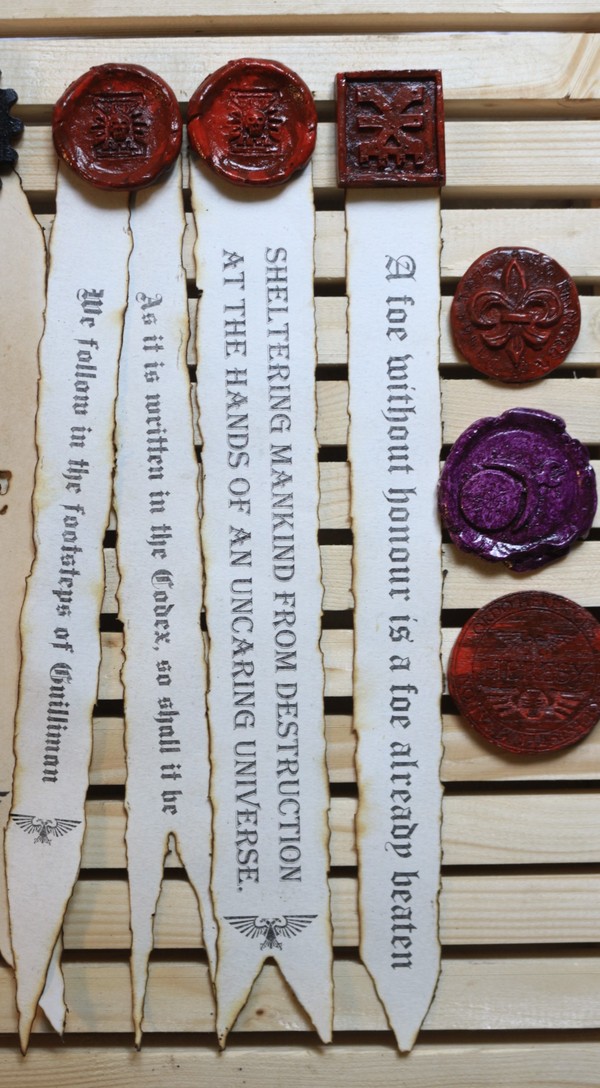 We follow in the footsteps of Guilliman
As it is written in the Codex, so shall it be
SHELTERING MANKIND FROM DESTRUCTION
AT THE HANDS OF AN UNCARING UNIVERSE.
A foe without honour is a foe already beaten